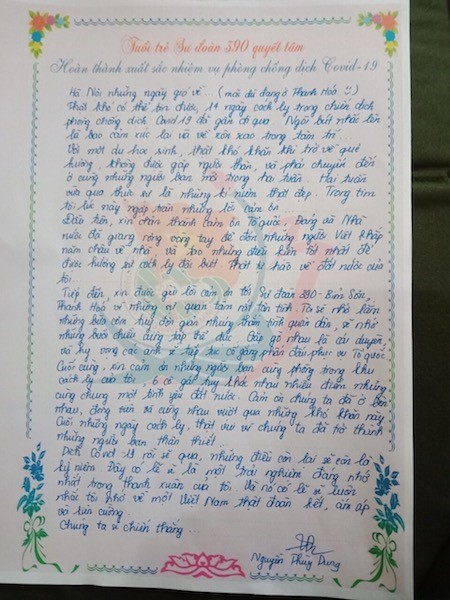 Tuổi trẻ Sư đoàn 390 quyết tâm
Hoàn thành xuất sắc nhiệm vụ phòng chống dịch Covid-19
Hà Nội những ngày gió về... (mặc dù đang ở Thanh Hoá !!)
Thật khó có thể tin được, 14 ngày cách ly trong chiến dịch
phòng chống dịch Covid 19 đã gần đi qua. Ngồi bất nhắc lên
là bao cảm xúc lại ùa về xốn xao trong tâm trí...
Với một du học sinh, thật khó khăn khi trở về quê
hương, không được gặp người thân, và phải chuyển đến
ở cùng những người bạn mới trong hai tuần. Hai tuần
vừa qua thực sự là những kỉ niệm thật đẹp. Trong tim
tôi lúc này ngập tràn những lời cảm ơn
Đầu tiên, xin chân thành cảm ơn Tổ quốc, Đảng và Nhà
nước đã giang rộng vòng tay để đón những người Việt khắp
năm châu về nhà, và tạo những điều kiện tốt nhất để
được hưởng sự cách ly đặc biệt. Thật tự hào về đất nước của
tôi...
Tiếp đến, xin được gửi lời cảm ơn tới Sư đoàn 390- Bỉm Sơn,
Thanh Hoá vì những sự quan tâm rất tận tình. Tôi sẽ nhớ lắm
những bữa cơm tuy đơn giản nhưng thắm tình quân dân, sẽ nhớ
những buổi chiều cùng tập thể dục. Gặp gỡ nhau là cái duyên,
và hy vọng các anh sẽ tiếp tục cố gắng phấn đấu phục vụ Tổ quốc
Cuối cùng, xin cảm ơn những người bạn cùng phòng trong khu
cách ly của tôi. 6 cô gái tuy khác nhau nhiều điểm nhưng
cùng chung một tình yêu đất nước. Cảm ơn chúng ta đã ở bên
nhau, động viên và cùng nhau vượt qua những khó khăn này
Cuối những ngày cách ly, thật vui vì chúng ta đã trở thành
những người bạn thân thiết...
Dịch Covid-19 rồi sẽ qua, những điều còn lại sẽ còn là
kỷ niệm. Đây có lẽ sẽ là một trải nghiệm đáng nhớ
nhất trong thanh xuân của tôi. Và nó có lẽ sẽ luôn
nhắc tôi nhớ về một Việt Nam thật đoàn kết, ấm áp
và bền cường.
Chúng ta sẽ chiến thắng...
Nguyễn Thuỳ Dung